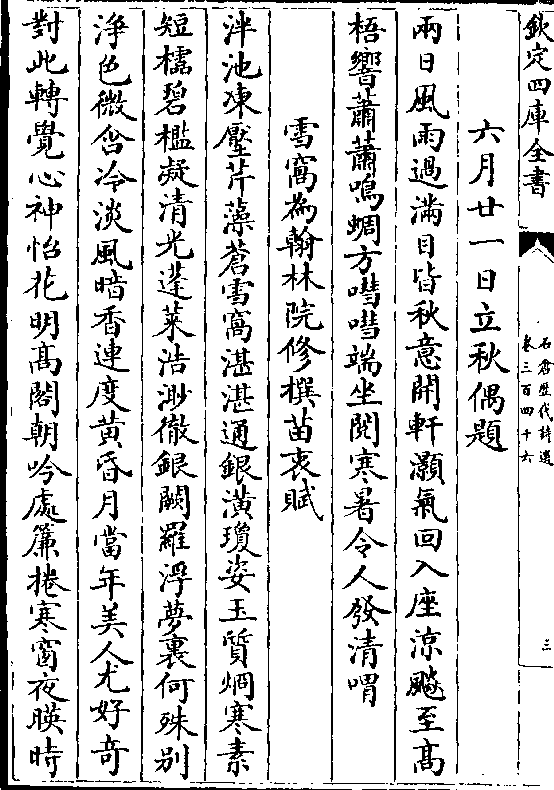 欽定四庫全書
石倉歷代詩選
卷三百四十六
三
六月廿一日立秋偶題
兩日風雨過滿目皆秋意開軒灝氣回入座涼飈至高
梧響蕭蕭鳴蜩方嘒嘒端坐閱寒暑令人發清喟
雪窩為翰林院修撰苗衷賦
泮池凍壓芹藻蒼雪窩湛湛通銀潢瓊姿玉質烱寒素
短櫺碧檻凝清光蓬萊浩渺徹銀闕羅浮夢裏何殊别
淨色微含冷淡風暗香連度黃昏月當年美人尤好奇
對此轉覺心神怡花明髙閣朝吟處簾捲寒窗夜睒時